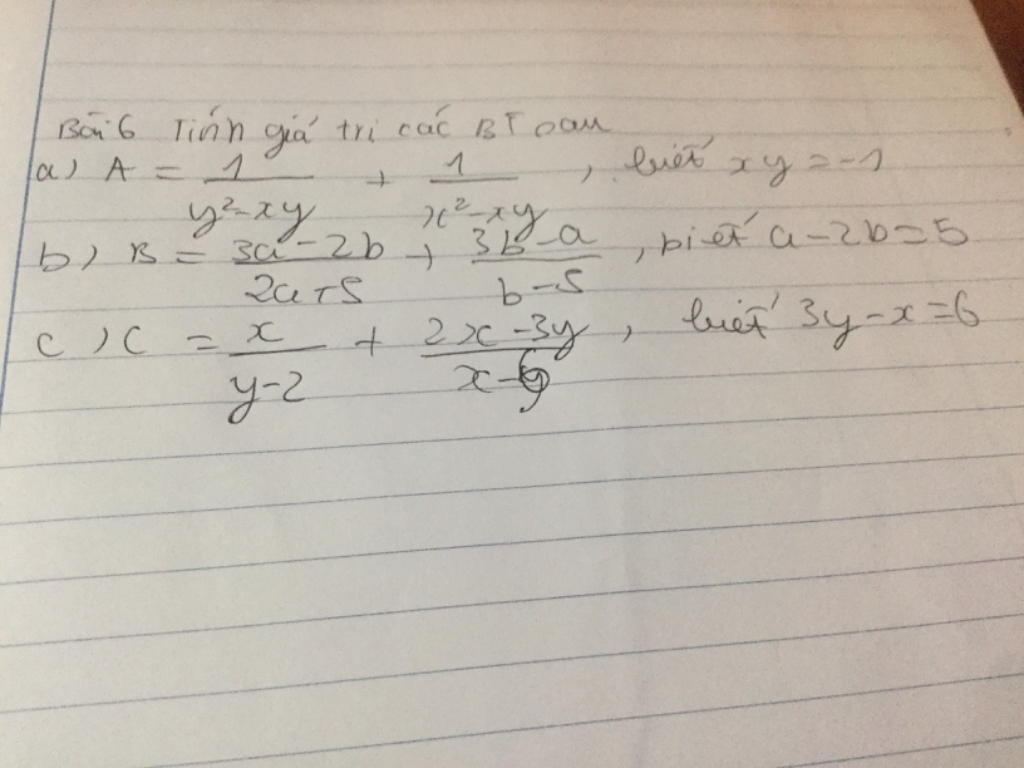 Bài 6 Tính giá trị các BT sau
a) A = 1/(y²-xy) + 1/(x²-xy) , biết xy = -1
b) B = (3a-2b)/(2a+5) + (3b-a)/(b-5) , biết a-2b=5
c) C = x/(y-2) + (2x-3y)/(x-6) , biết 3y-x=6